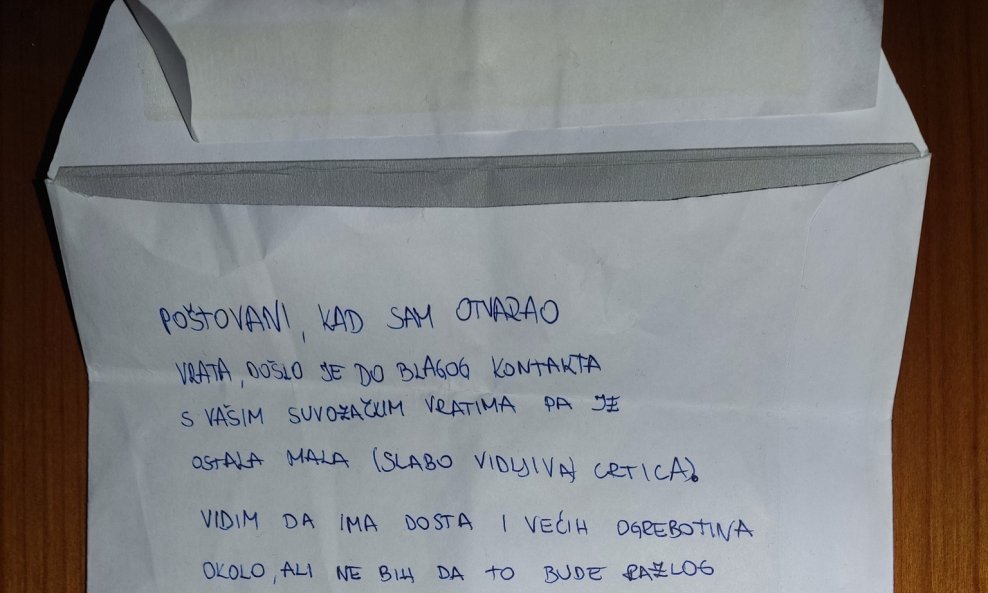 POŠTOVANI, KAD SAM OTVARAO
VRATA, DOŠLO JE DO BLAGOG KONTAKTA
S VAŠIM SUVOZAČKIM VRATIMA PA JE
OSTALA MALA (SLABO VIDLJIVA) CRTICA).
VIDIM DA IMA DOSTA I VEĆIH OGREBOTINA
OKOLO, ALI NE BIH DA TO BUDE RAZLOG